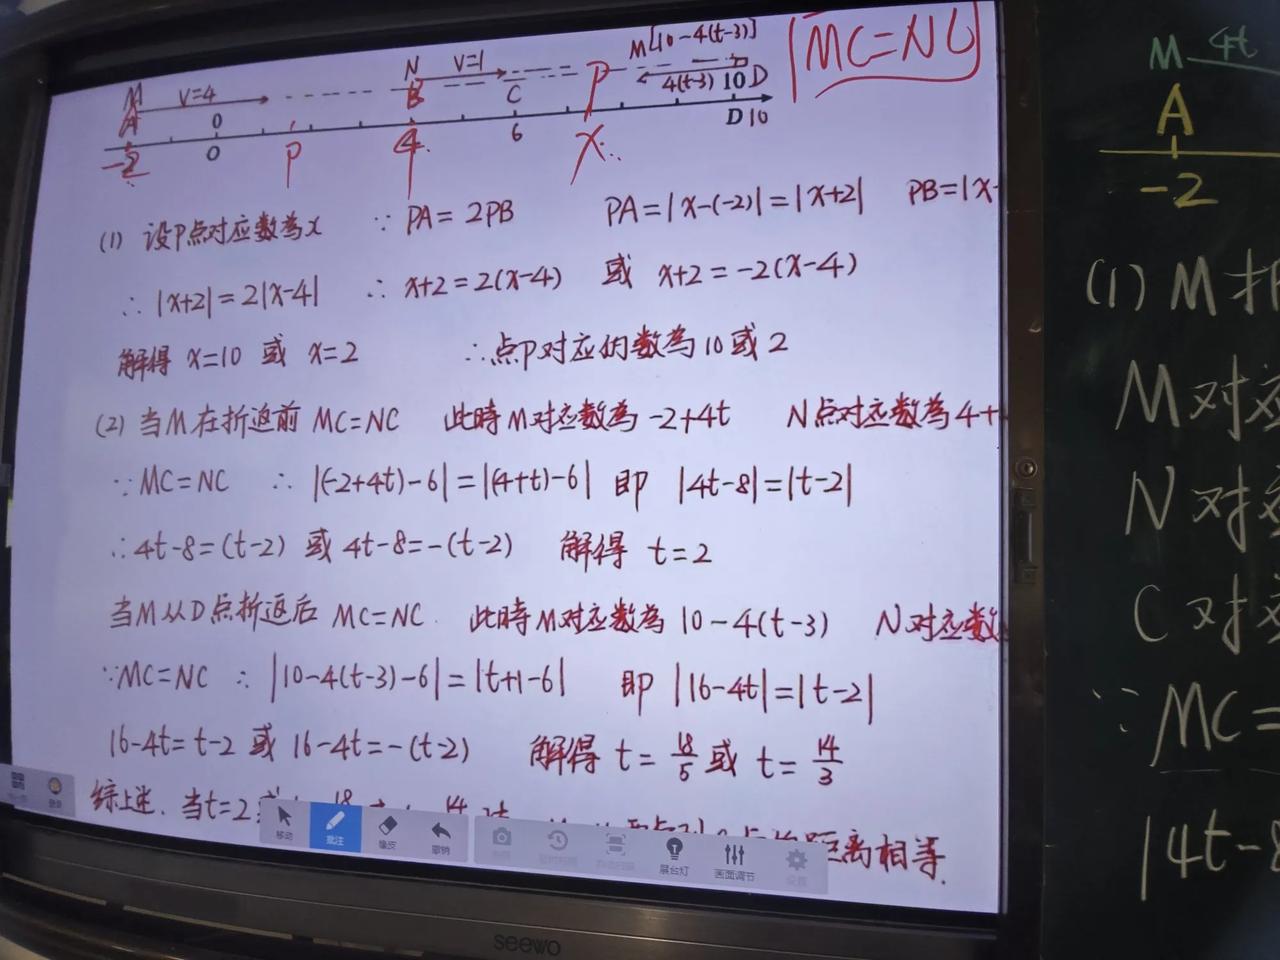 M[10-4(t-3)]
|MC=NC|
N V=1
M V=4
B C P 4(t-3) 10 D
A 0
-2 0 P 4 6 X D 10
(1) 设P点对应数为x ∵ PA=2PB PA=|x-(-2)|=|x+2| PB=|x-
∴ |x+2|=2|x-4| ∴ x+2=2(x-4) 或 x+2=-2(x-4)
解得 x=10 或 x=2 ∴点P对应的数为10或2
(2) 当M在折返前 MC=NC 此时M对应数为 -2+4t N点对应数为4+
∵ MC=NC ∴ |(-2+4t)-6|=|(4+t)-6| 即 |4t-8|=|t-2|
∴4t-8=(t-2) 或 4t-8=-(t-2) 解得 t=2
当M从D点折返后 MC=NC. 此时M对应数为 10-4(t-3) N对应数
∵MC=NC ∴ |10-4(t-3)-6|=|t+1-6| 即 |16-4t|=|t-2|
16-4t=t-2 或 16-4t=-(t-2) 解得 t=18/5 或 t=14/3
综上述. 当t=2 距离相等.
移动 批注 橡皮 撤销 展台灯 画面调节 设置
seewo
M 4t
A
-2
(1) M
M对应
N对
C对
∵ MC=
|4t-8